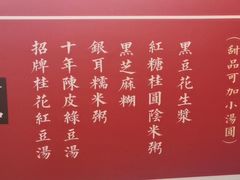 (甜品可加小湯圓)
黑豆花生漿
紅糖桂圓陰米粥
黑芝麻糊
銀耳糯米粥
十年陳皮綠豆湯
招牌桂花紅豆湯